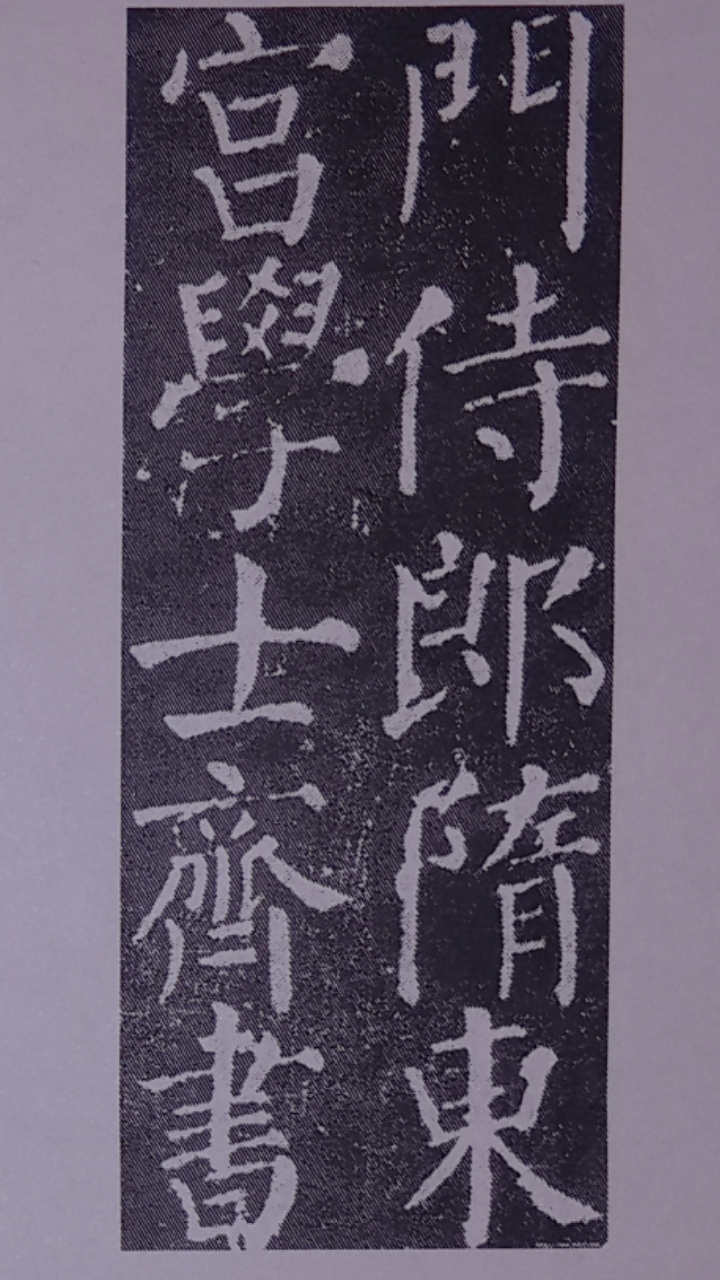 門侍郎隋東
宮學士齊書